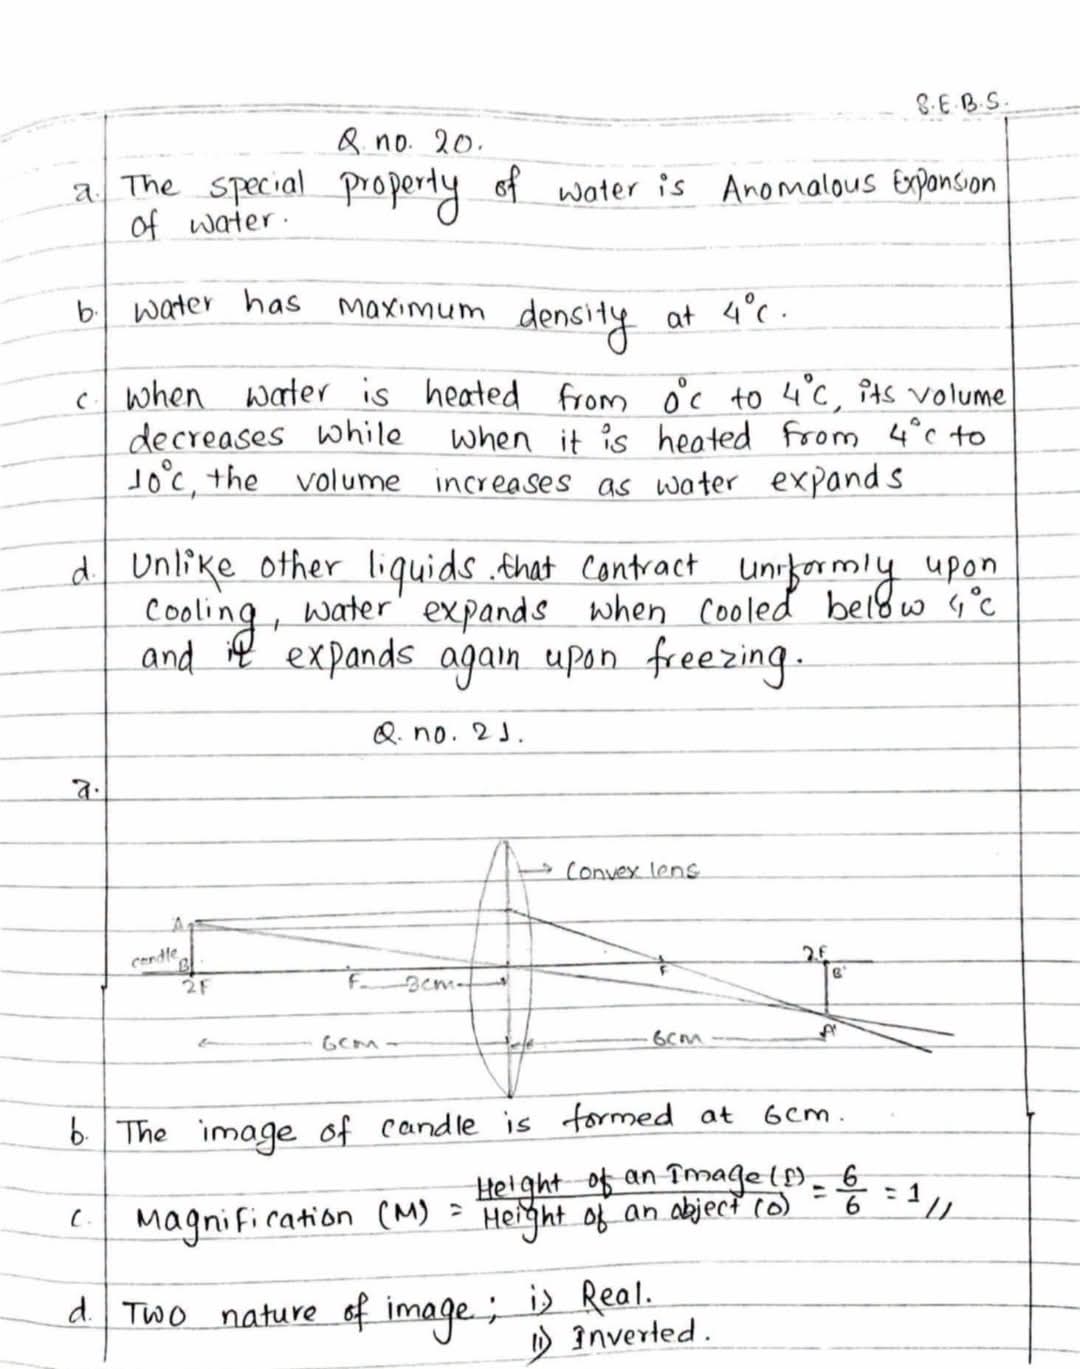 S.E.B.S.
Q. no. 20.
a. The special property of water is Anomalous Expansion
of water.
b. water has maximum density at 4°c.
c. when water is heated from 0°c to 4°C, its volume
decreases while when it is heated from 4°c to
10°c, the volume increases as water expands
d. Unlike other liquids .that contract uniformly upon
cooling, water expands when cooled below 4°c
and it expands again upon freezing.
Q. no. 21.
a.
→ Convex lens
A
candle B
2F
2F
B'
F
F 3cm
6cm
6cm
A'
b. The image of candle is formed at 6cm.
c. Magnification (M) = Height of an Image(I) / Height of an object (O) = 6/6 = 1 //
d. Two nature of image; i) Real.
ii) Inverted.